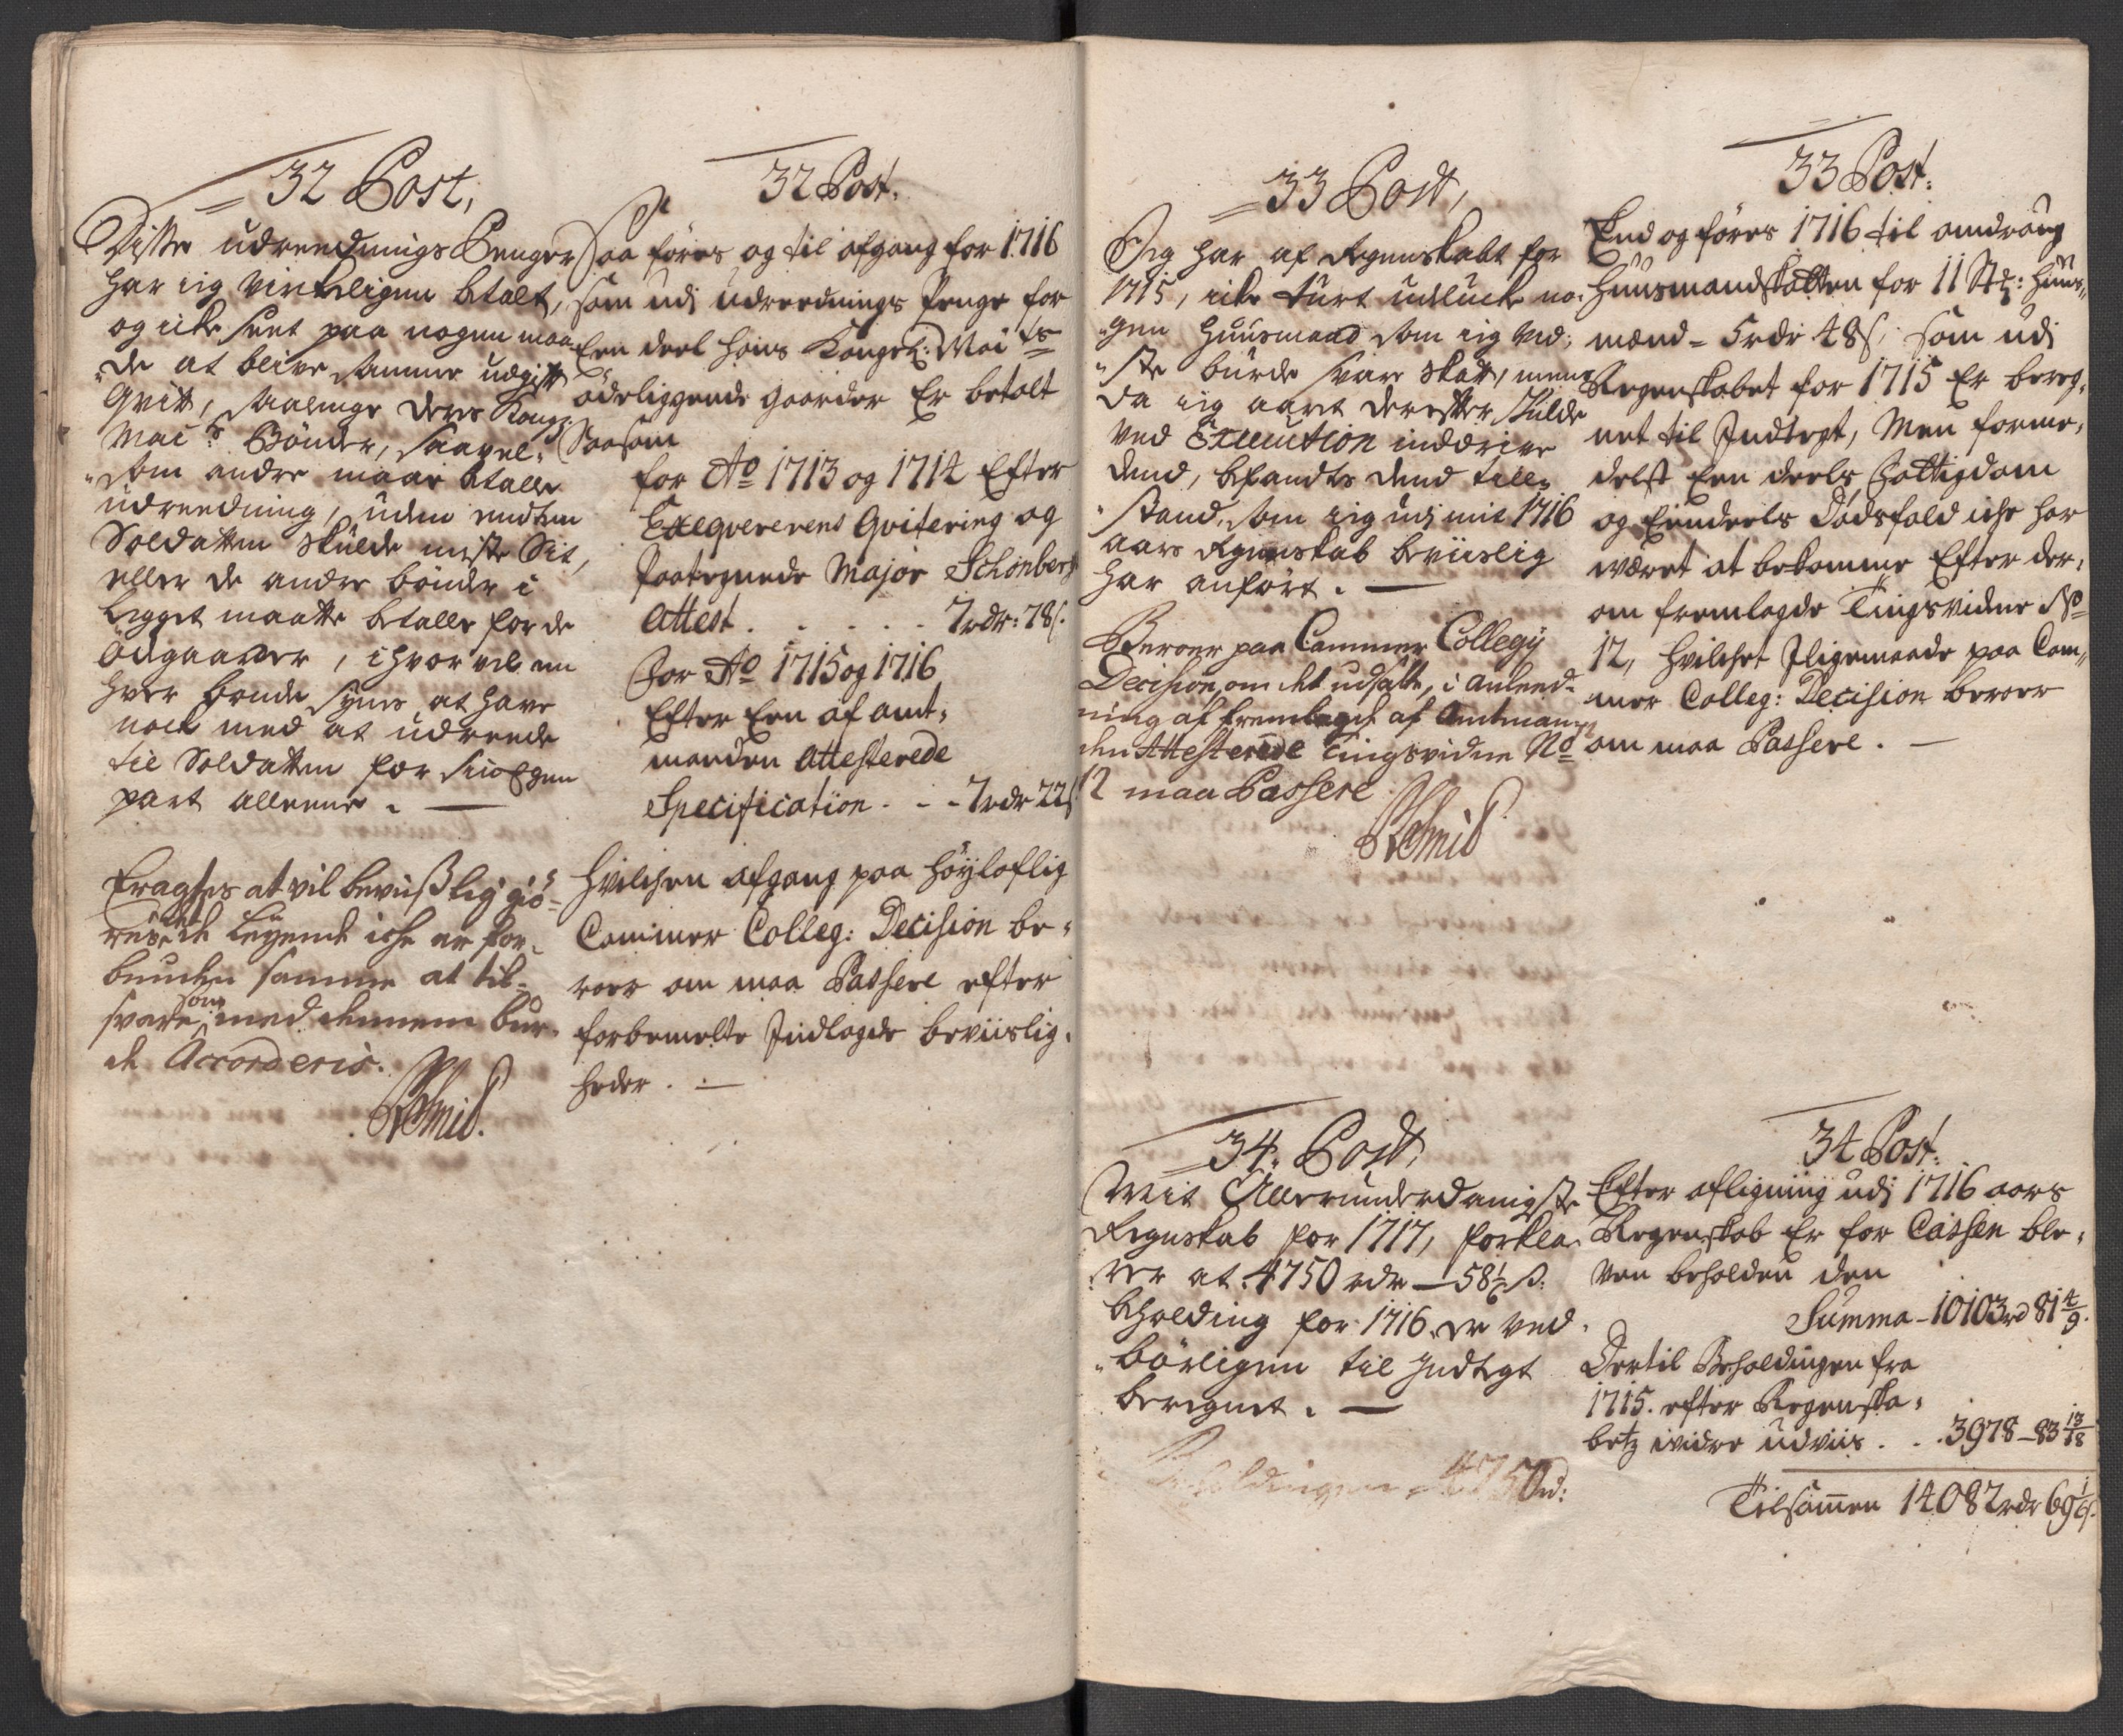 32 Post,
Disse udreednings Penger
har ieg virkeligen betalt,
og icke seet paa nogen maa
de at blive samme udgift
qvit, saalenge deris Kongl:
Mai:s Bönder, saavel
som andre maae betalle
udreedning, uden endten
Soldatten skulde miste Sit,
eller de andre bönder i
Legget maatte betalle for de
ödegaarder, i hvor vel en
hver bonde synes at have
nock med at udreede
til Soldatten for sin Egen
part alleene.
Eragtes at vil beviislig giö-
res at de Leyende iche er for-
bunden samme at til-
svare, som med dennem bur-
de Accorderis.
32 Post.
Saa föres og til afgang for 1716
som udi udreednings Penge for
Een deel hans Kongel: Mai:ts
ödeliggende gaarder Er betalt
Saasom
for Ao 1713 og 1714 Efter
Exeqvererens Qvitering og
Paategnede Major Schönberg
Attest . . . . . 7rdr: 78s.
For Ao 1715 og 1716
Efter Een af amt-
manden Attesterede
Specification . . - 7rdr 22s
Hvilchen afgang paa höyloflig
Cammer Colleg: Decision be-
roer om maa Passere efter
forbemelte Indlagde beviislig-
heder.
33 Post,
Jeg har af Regenskabet for
1715, icke turt udlucke no-
gen Huusmand som ieg ved-
ste burde svare skatt, mens
da ieg aaret derefter skulde
ved Execution inddrive
dend, befandtes dend till-
stand, som ieg udi mit 1716
aars Regenskab beviislig
har anfört.
Beroer paa Cammer Collegij
Decision, om det udsatte, i anleed-
ning af fremlagde af Amtman
den Attesterede Tingsvidne No
12 maa Passere
33 Post:
End og föres 1716 til anddrag
Huusmandskatten for 11 Stk: huus-
mænd - 5rdr 48s, som udi
Regenskabet for 1715 Er bereg-
net til Indtegt, Men forme-
delst Een deels Fattigdom
og Eendeels Dödsfald iche har
wæret at bekomme Efter der-
om fremlagde Tingsvidne No
12, hvilchet iligemaade paa Cam-
mer Colleg: Decision beroer
om maa Passere.
34. Post,
Mit Allerunderdanigste
Regnskab for 1717, forkla-
rer at 4750 rdr - 58½ s:
beholding for 1716 er ved-
börligen til Indtegt
beregnet.
Beholdingen 4750rd:
34 Post:
Efter afligning udi 1716 aars
Regenskab Er for Cassen ble-
ven beholden den
Summa - 10103rd 81 4/9.
Dertil Beholdingen fra
1715. efter Regenska-
betz widre udviis . . . 3978 - 83 13/18
Tilsammen 14082rdr 69 1/6s.